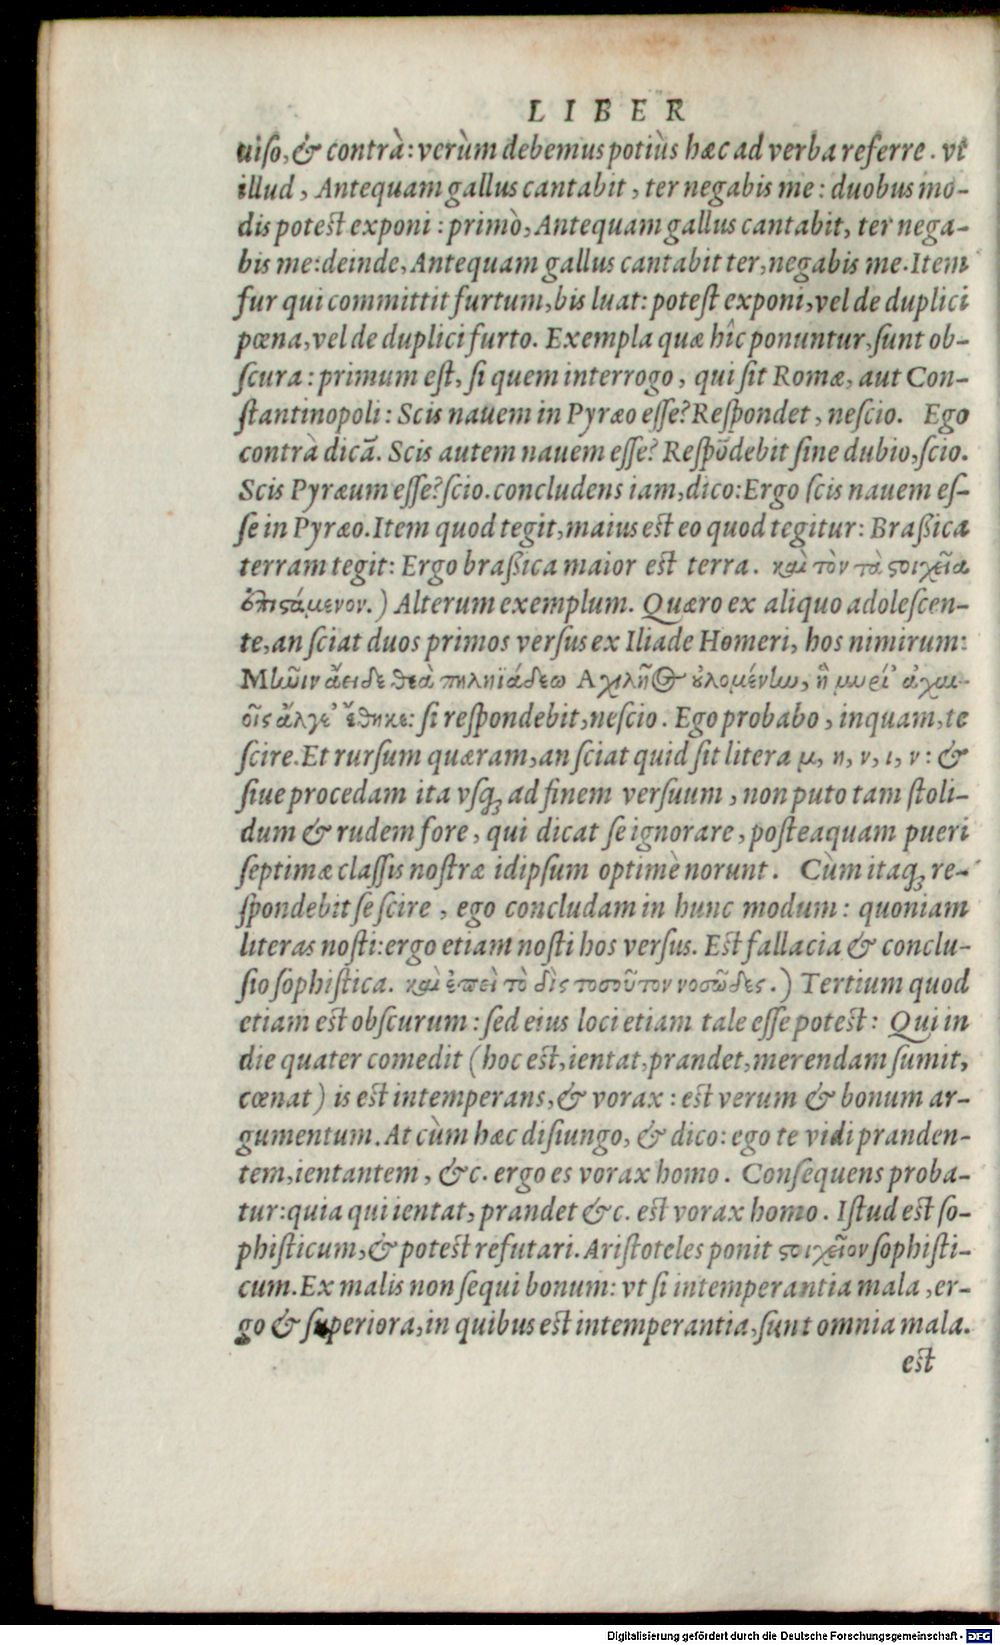 LIBER
uiso, & contrà: verùm debemus potiùs hæc ad verba referre. vt
illud, Antequam gallus cantabit, ter negabis me: duobus mo-
dis potest exponi: primò, Antequam gallus cantabit, ter nega-
bis me: deinde, Antequam gallus cantabit ter, negabis me. Item
fur qui committit furtum, bis luat: potest exponi, vel de duplici
pœna, vel de duplici furto. Exempla quæ hîc ponuntur, sunt ob-
scura: primum est, si quem interrogo, qui sit Romæ, aut Con-
stantinopoli: Scis nauem in Pyræo esse? Respondet, nescio. Ego
contrà dicã. Scis autem nauem esse? Respõdebit sine dubio, scio.
Scis Pyræum esse? scio. concludens iam, dico: Ergo scis nauem es-
se in Pyræo. Item quod tegit, maius est eo quod tegitur: Braßica
terram tegit: Ergo braßica maior est terra. καὶ τὸν τὰ ϛοιχεῖα
ἐπιϛάμενον.) Alterum exemplum. Quæro ex aliquo adolescen-
te, an sciat duos primos versus ex Iliade Homeri, hos nimirum:
Μῆνιν ἄειδε θεὰ πηληϊάδεω Ἀχιλῆος οὐλομένην, ἣ μυρί' ἀχαι-
οῖς ἄλγε' ἔθηκε: si respondebit, nescio. Ego probabo, inquam, te
scire. Et rursum quæram, an sciat quid sit litera μ, η, ν, ι, ν: &
siue procedam ita vsq; ad finem versuum, non puto tam stoli-
dum & rudem fore, qui dicat se ignorare, posteaquam pueri
septimæ classis nostræ idipsum optimè norunt. Cùm itaq; re-
spondebit se scire, ego concludam in hunc modum: quoniam
literas nosti: ergo etiam nosti hos versus. Est fallacia & conclu-
sio sophistica. καὶ ἐπεὶ τὸ δὶς τοσοῦτον νοσῶδες.) Tertium quod
etiam est obscurum: sed eius loci etiam tale esse potest: Qui in
die quater comedit (hoc est, ientat, prandet, merendam sumit,
cœnat) is est intemperans, & vorax: est verum & bonum ar-
gumentum. At cùm hæc disiungo, & dico: ego te vidi pranden-
tem, ientantem, &c. ergo es vorax homo. Consequens proba-
tur: quia qui ientat, prandet &c. est vorax homo. Istud est so-
phisticum, & potest refutari. Aristoteles ponit ϛοιχεῖον sophisti-
cum. Ex malis non sequi bonum: vt si intemperantia mala, er-
go & superiora, in quibus est intemperantia, sunt omnia mala.
est
Digitalisierung gefördert durch die Deutsche Forschungsgemeinschaft - DFG